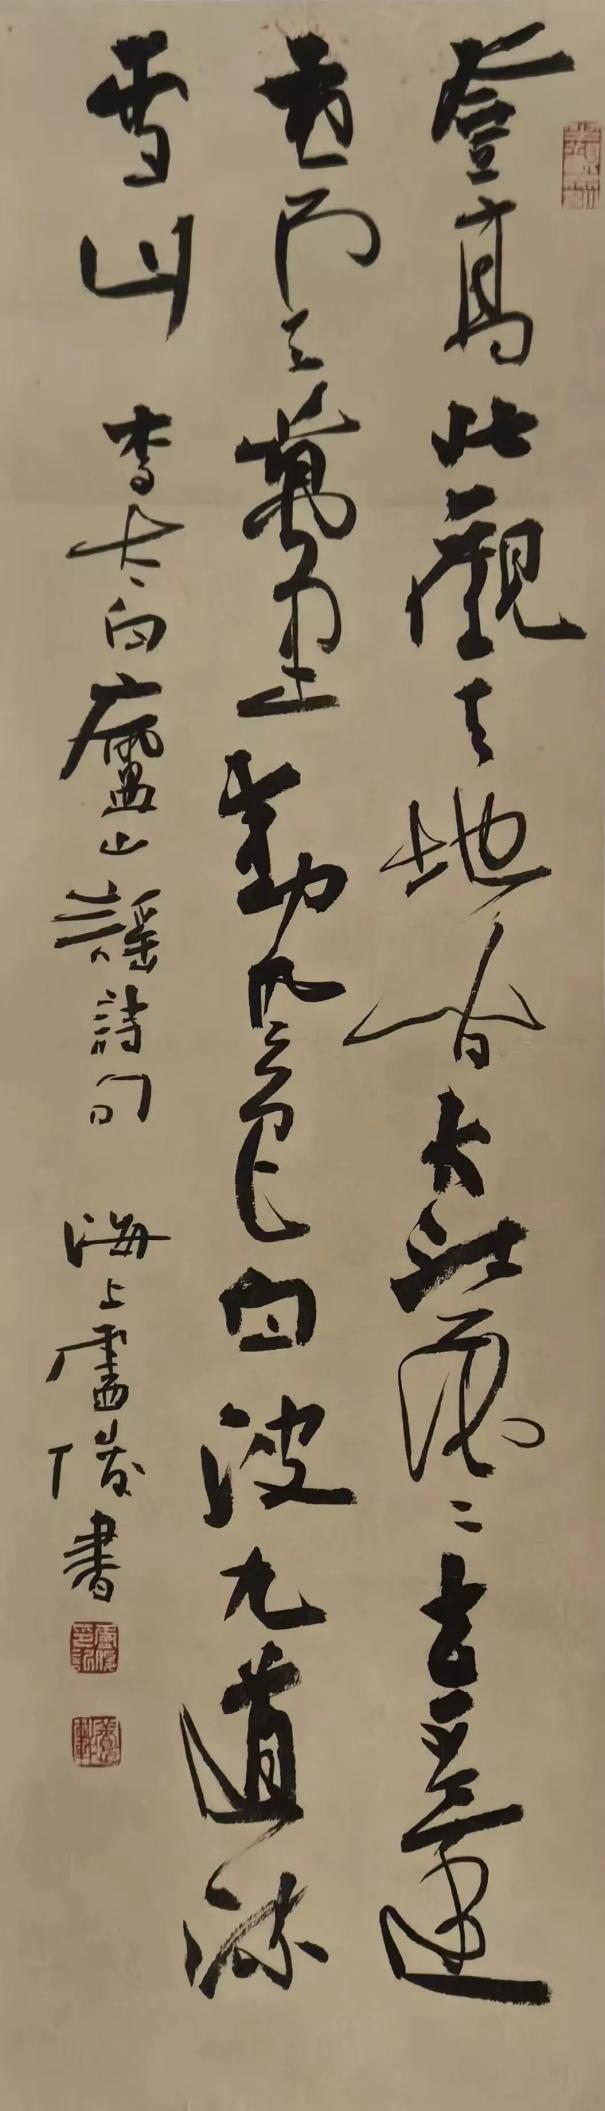 登高壮觀天地間大江茫〻去不還
黃雲萬里動風色白波九道流
雪山 李太白廬山謠詩句 海上盧書